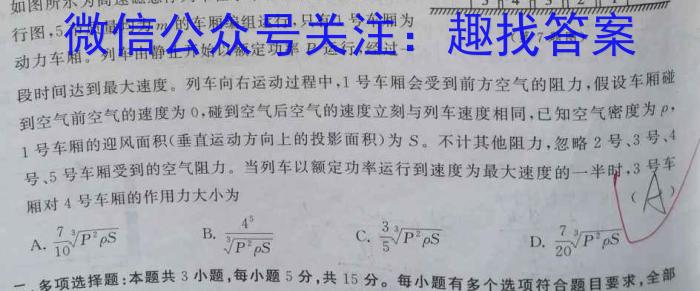 如图所示为高速磁悬浮列车在水平长直轨道上
行图,5 的车厢编组运行,只有1号车厢为
动力车厢。列车由静止开始以额定功率P运行,经过一
微信公众号关注:趣找答案
段时间达到最大速度。列车向右运动过程中,1号车厢会受到前方空气的阻力,假设车厢碰
到空气前空气的速度为0,碰到空气后空气的速度立刻与列车速度相同,已知空气密度为ρ,
1号车厢的迎风面积(垂直运动方向上的投影面积)为S。不计其他阻力,忽略2号、3号、4
号、5号车厢受到的空气阻力。当列车以额定功率运行到速度为最大速度的一半时,3号车
厢对4号车厢的作用力大小为 (A)
A. 7/10 ∛(P²ρS) B. 4⁵/∛(P²ρS) C. 3/5 ∛(P²ρS) D. 7/20 ∛(P²ρS)
二、多项选择题:本题共3小题,每小题5分,共15分。每小题有多个选项符合题目要求,全部